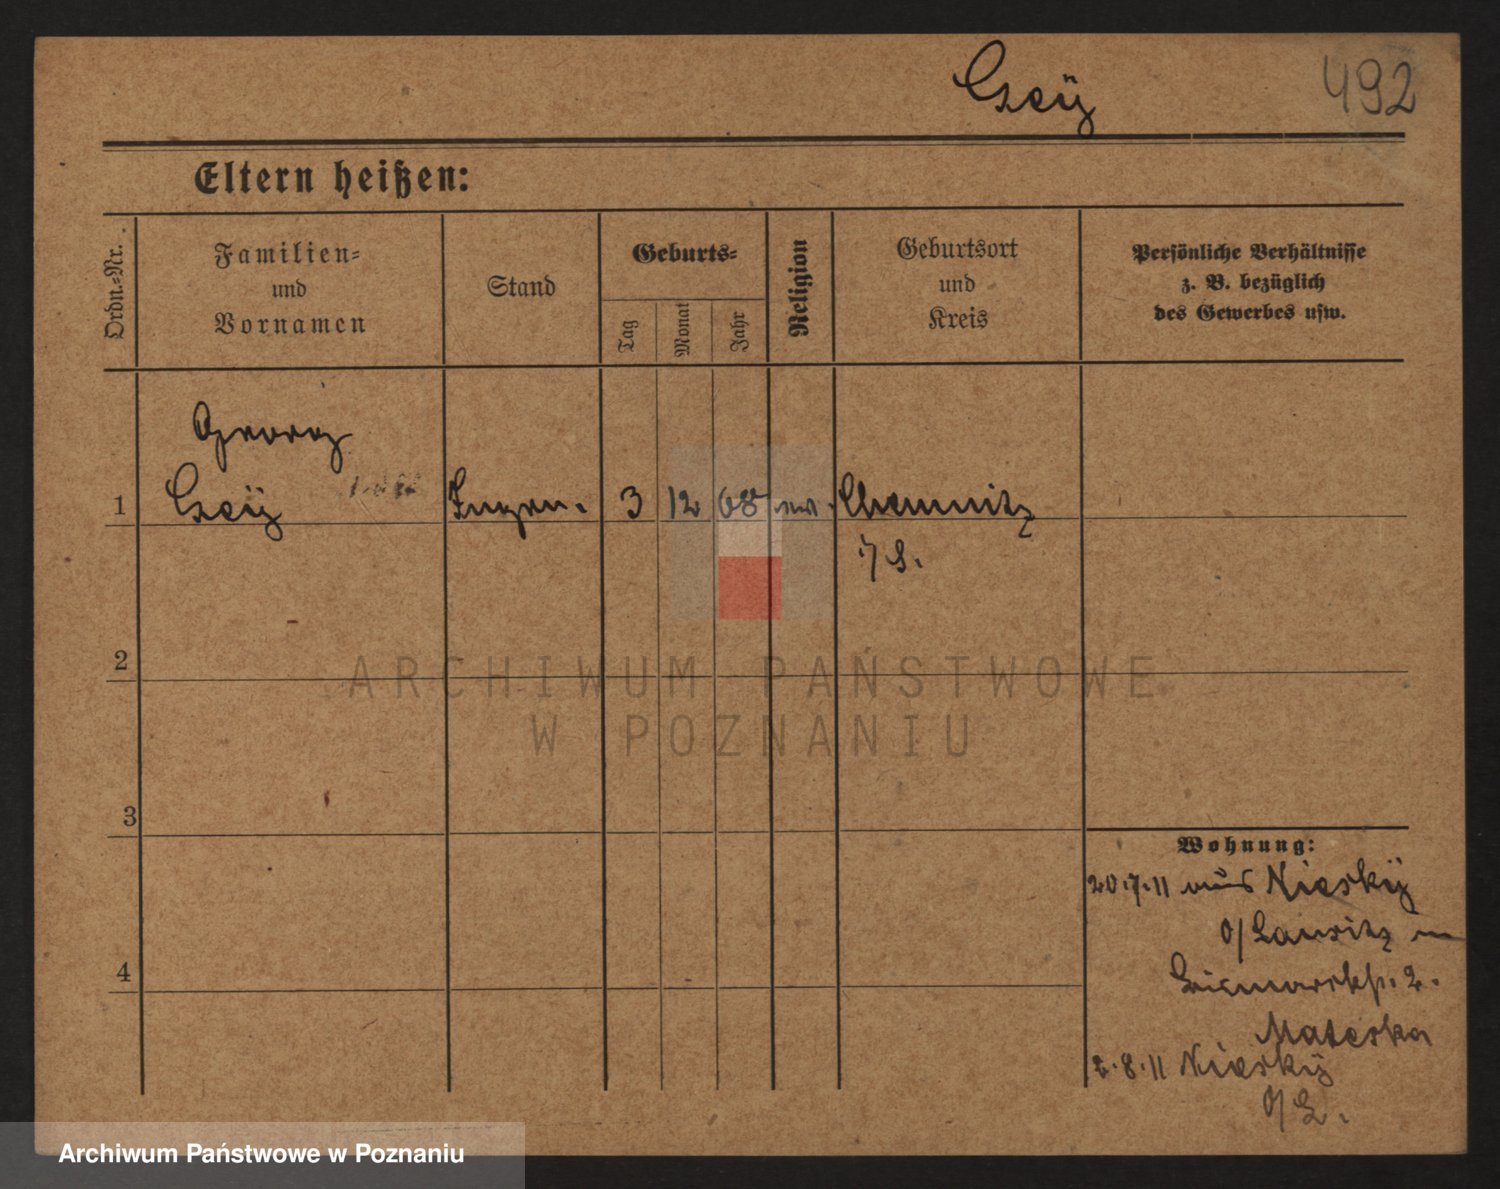 Czeÿ
492
Eltern heißen:
Ordn.-Nr.
Familien-
und
Vornamen
Stand
Geburts-
Tag
Monat
Jahr
Religion
Geburtsort
und
Kreis
Persönliche Verhältnisse
z. B. bezüglich
des Gewerbes usw.
Georg
1 Czeÿ Ingen. 3 12 68 ev. Chemnitz
i/S.
2
3
4
Wohnung:
20.7.11 aus Nieskÿ
O/Lausitz
Bismarckstr. 2.
Mateska
2.8.11 Nieskÿ
O/L.
ARCHIWUM PAŃSTWOWE
W POZNANIU
Archiwum Państwowe w Poznaniu